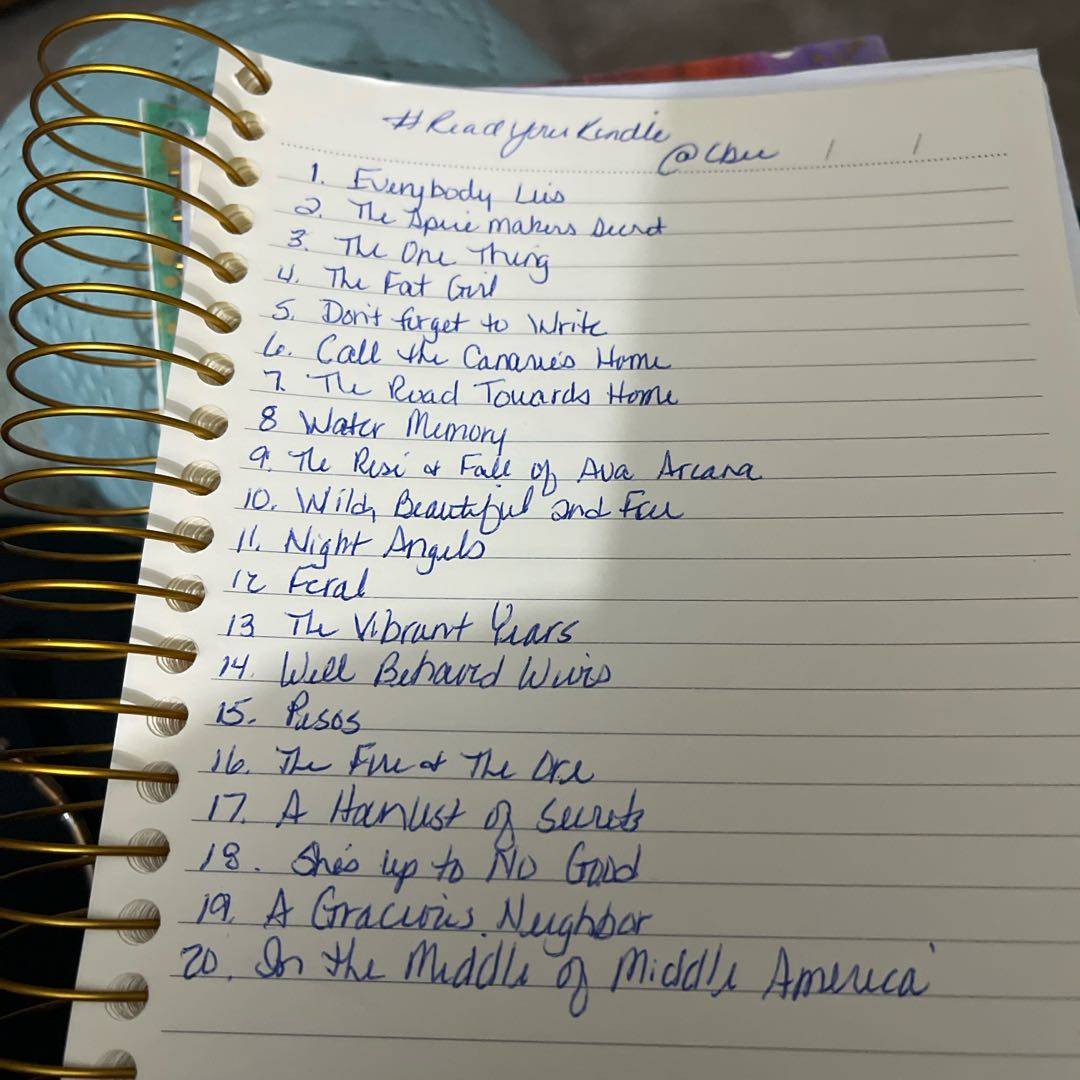 #ReadyourKindle
@CBee / /
1. Everybody Lies
2. The Spice makers Secret
3. The One Thing
4. The Fat Girl
5. Don't forget to Write
6. Call the Canaries Home
7. The Road Towards Home
8 Water Memory
9. The Rise & Fall of Ava Arcana
10. Wild, Beautiful and Free
11. Night Angels
12 Feral
13 The Vibrant Years
14. Well Behaved Wives
15. Pesos
16. The Fire & The Ore
17. A Harvest of Secrets
18. She's up to No Good
19. A Gracious Neighbor
20. In the Middle of Middle America